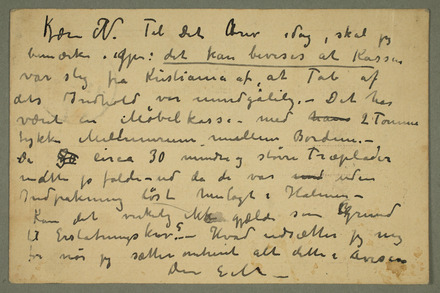 Kjære N. Til det Brev idag, skal jeg
bemærke igjen: det kan bevises at Kassen
var slig fra Kristiania af, at Tab af
dets Indhold var uundgåelig. – Det har
været en Möbelkasse – med 2 Tomme
tykke Mellemrum mellem Bordene. –
De circa 30 mindre og större Træplader
måtte jo falde ud da de var uden
Indpakning löst henlagt i Halmen –
Kan det virkelig ikke gjælde som Grund
til Erstatningskrav? – Hvad udsætter jeg mig
for når jeg sætter omtrent alt dette i Avisen
Din E.M. –